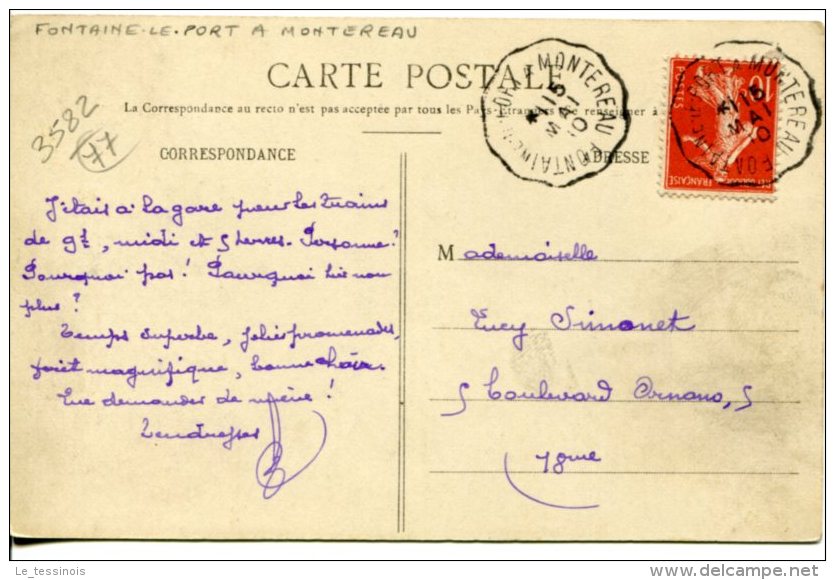 FONTAINE-LE-PORT A MONTEREAU
CARTE POSTALE
La Correspondance au recto n'est pas acceptée par tous les Pays Étrangers renseigner à
3582
77
CORRESPONDANCE
ADRESSE
MONTEREAU FONTAINE
15
MAI
10
MONTEREAU FONTAINE
15
MAI
10
FRANÇAISE
J'étais à la gare pour les trains
de 9h, midi et 5 heures. Personne?
Pourquoi pas! Pourquoi hier non
plus?
Temps superbe, jolies promenades,
forêt magnifique, bonne chère.
Que demander de mieux!
Tendresses
Mademoiselle
Lucy Simonet
5 boulevard Ornano, 5
18eme
Le_tessinois
delcampe.net